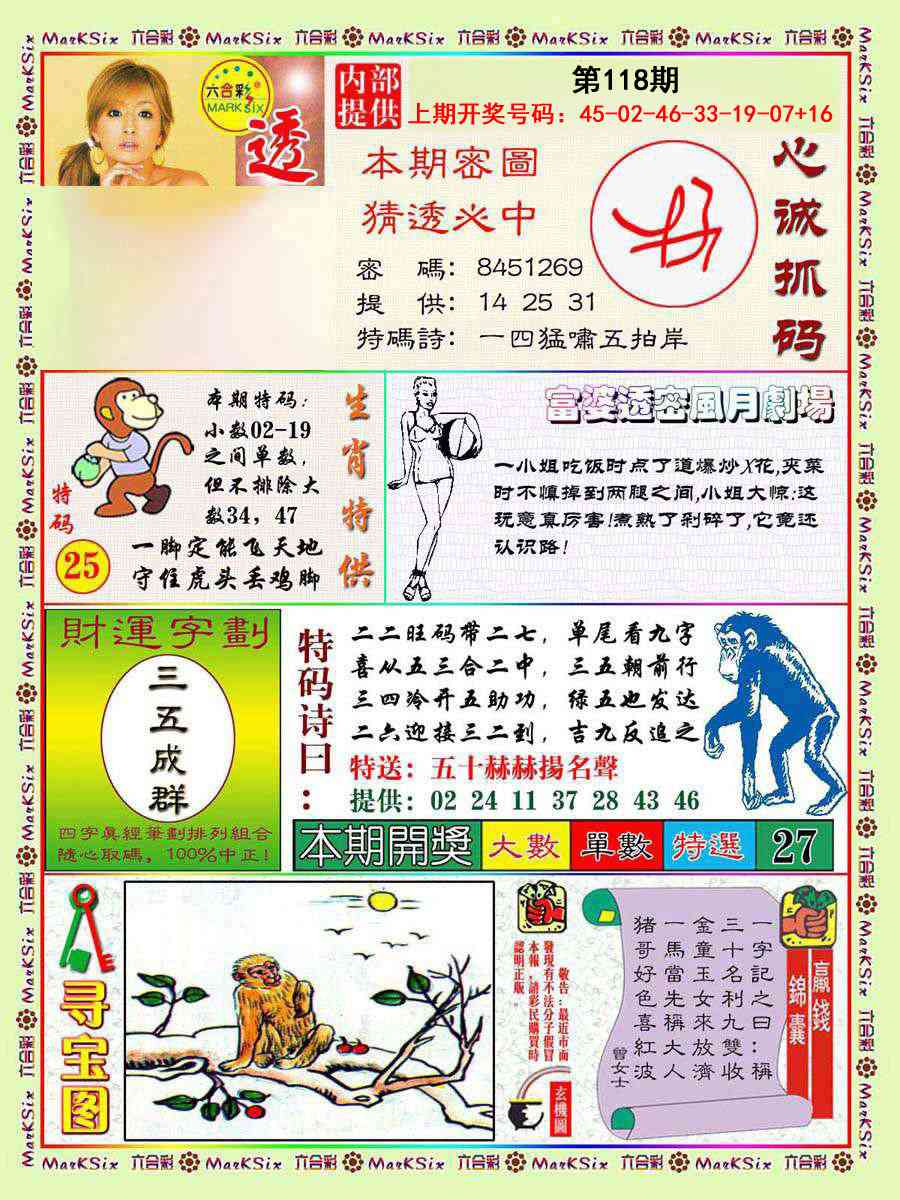 MarKSix 六合彩 MarKSix 六合彩 MarKSix 六合彩 MarKSix 六合彩 MarKSix 六合彩
六合彩
MARK six
透
内部
提供
第118期
上期开奖号码：45-02-46-33-19-07+16
本期密圖
猜透必中
密　碼：8451269
提　供：14 25 31
特碼詩：一四猛嘯五拍岸
心诚抓码
特码
25
本期特码：
小数02-19
之间单数，
但不排除大
数34，47
一脚定能飞天地
守住虎头丢鸡脚
生肖特供
富婆透密風月劇場
一小姐吃饭时点了道爆炒X花,夹菜
时不慎掉到两腿之间,小姐大惊:这
玩意真厉害!煮熟了剁碎了,它竟还
认识路!
財運字劃
三五成群
四字眞經筆劃排列組合
隨心取碼，100%中正!
特码诗曰：
二二旺码带二七，单尾看九字
喜从五三合二中，三五朝前行
三四冷开五助功，绿五也发达
二六迎接三二到，吉九反追之
特送：五十赫赫揚名聲
提供：02 24 11 37 28 43 46
本期開獎 大數 單數 特選 27
寻宝图
敬告:最近市面
發現有不法分子假冒
本報,請彩民購買時
認明正版。
玄機圖
一字記之曰：稱
三十名利九雙收
金童玉女來放濟
一馬當先稱大人
猪哥好色喜紅波
曾女士
贏錢
錦囊
MarKSix 六合彩 MarKSix 六合彩 MarKSix 六合彩 MarKSix 六合彩 MarKSix 六合彩